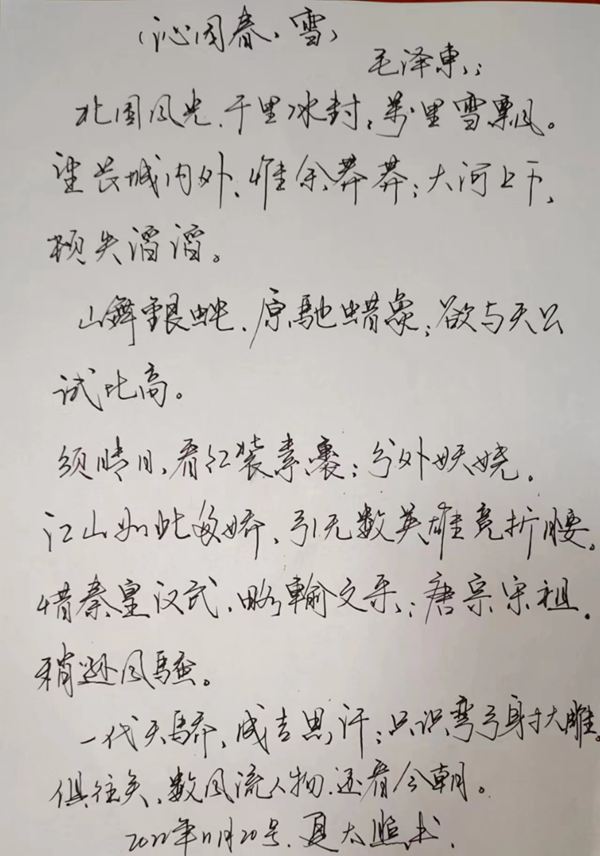 （沁园春、雪）
毛泽东；
北国风光、千里冰封；万里雪飘。
望长城内外、惟余莽莽；大河上下、
顿失滔滔。
山舞银蛇、原驰蜡象；欲与天公
试比高。
须晴日、看红装素裹；分外妖娆。
江山如此多娇、引无数英雄竞折腰。
惜秦皇汉武、略输文采；唐宗宋祖、
稍逊风骚。
一代天骄、成吉思汗；只识弯弓射大雕。
俱往矣、数风流人物、还看今朝。
2022年11月20号、夏太 书